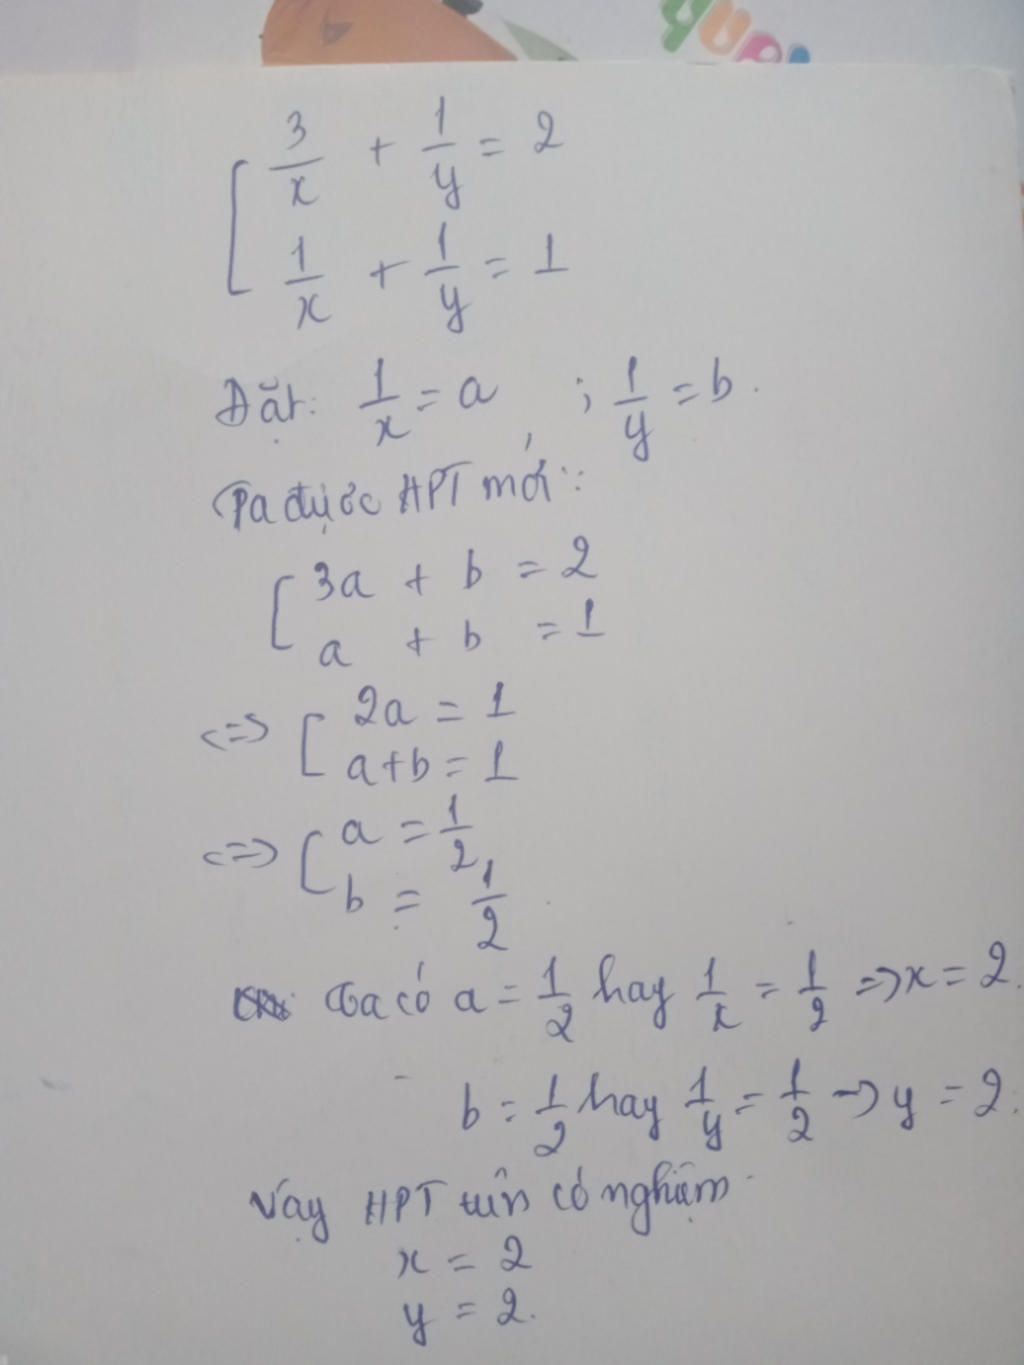 3/x + 1/y = 2
1/x + 1/y = 1
Đặt: 1/x = a ; 1/y = b.
Ta được HPT mới:
3a + b = 2
a + b = 1
<=> 2a = 1
a+b = 1
<=> a = 1/2
b = 1/2
Ta có a = 1/2 hay 1/x = 1/2 => x = 2.
b = 1/2 hay 1/y = 1/2 -> y = 2.
Vậy HPT trên có nghiệm
x = 2
y = 2.